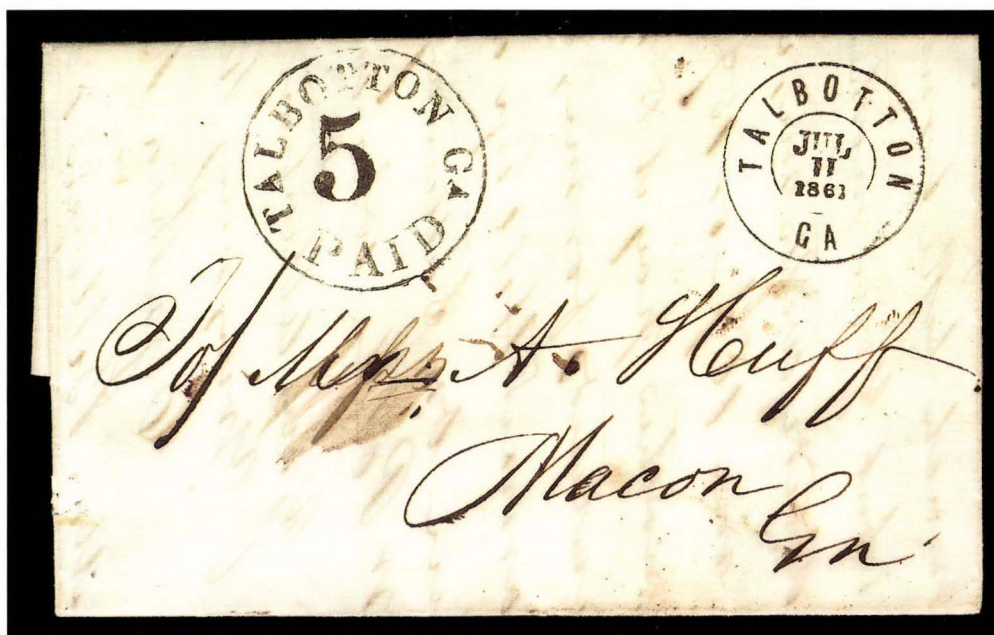 TALBOTTON GA
5
PAID
TALBOTTON
JUL
11
1861
GA
To A. Huff
Macon
Ga.